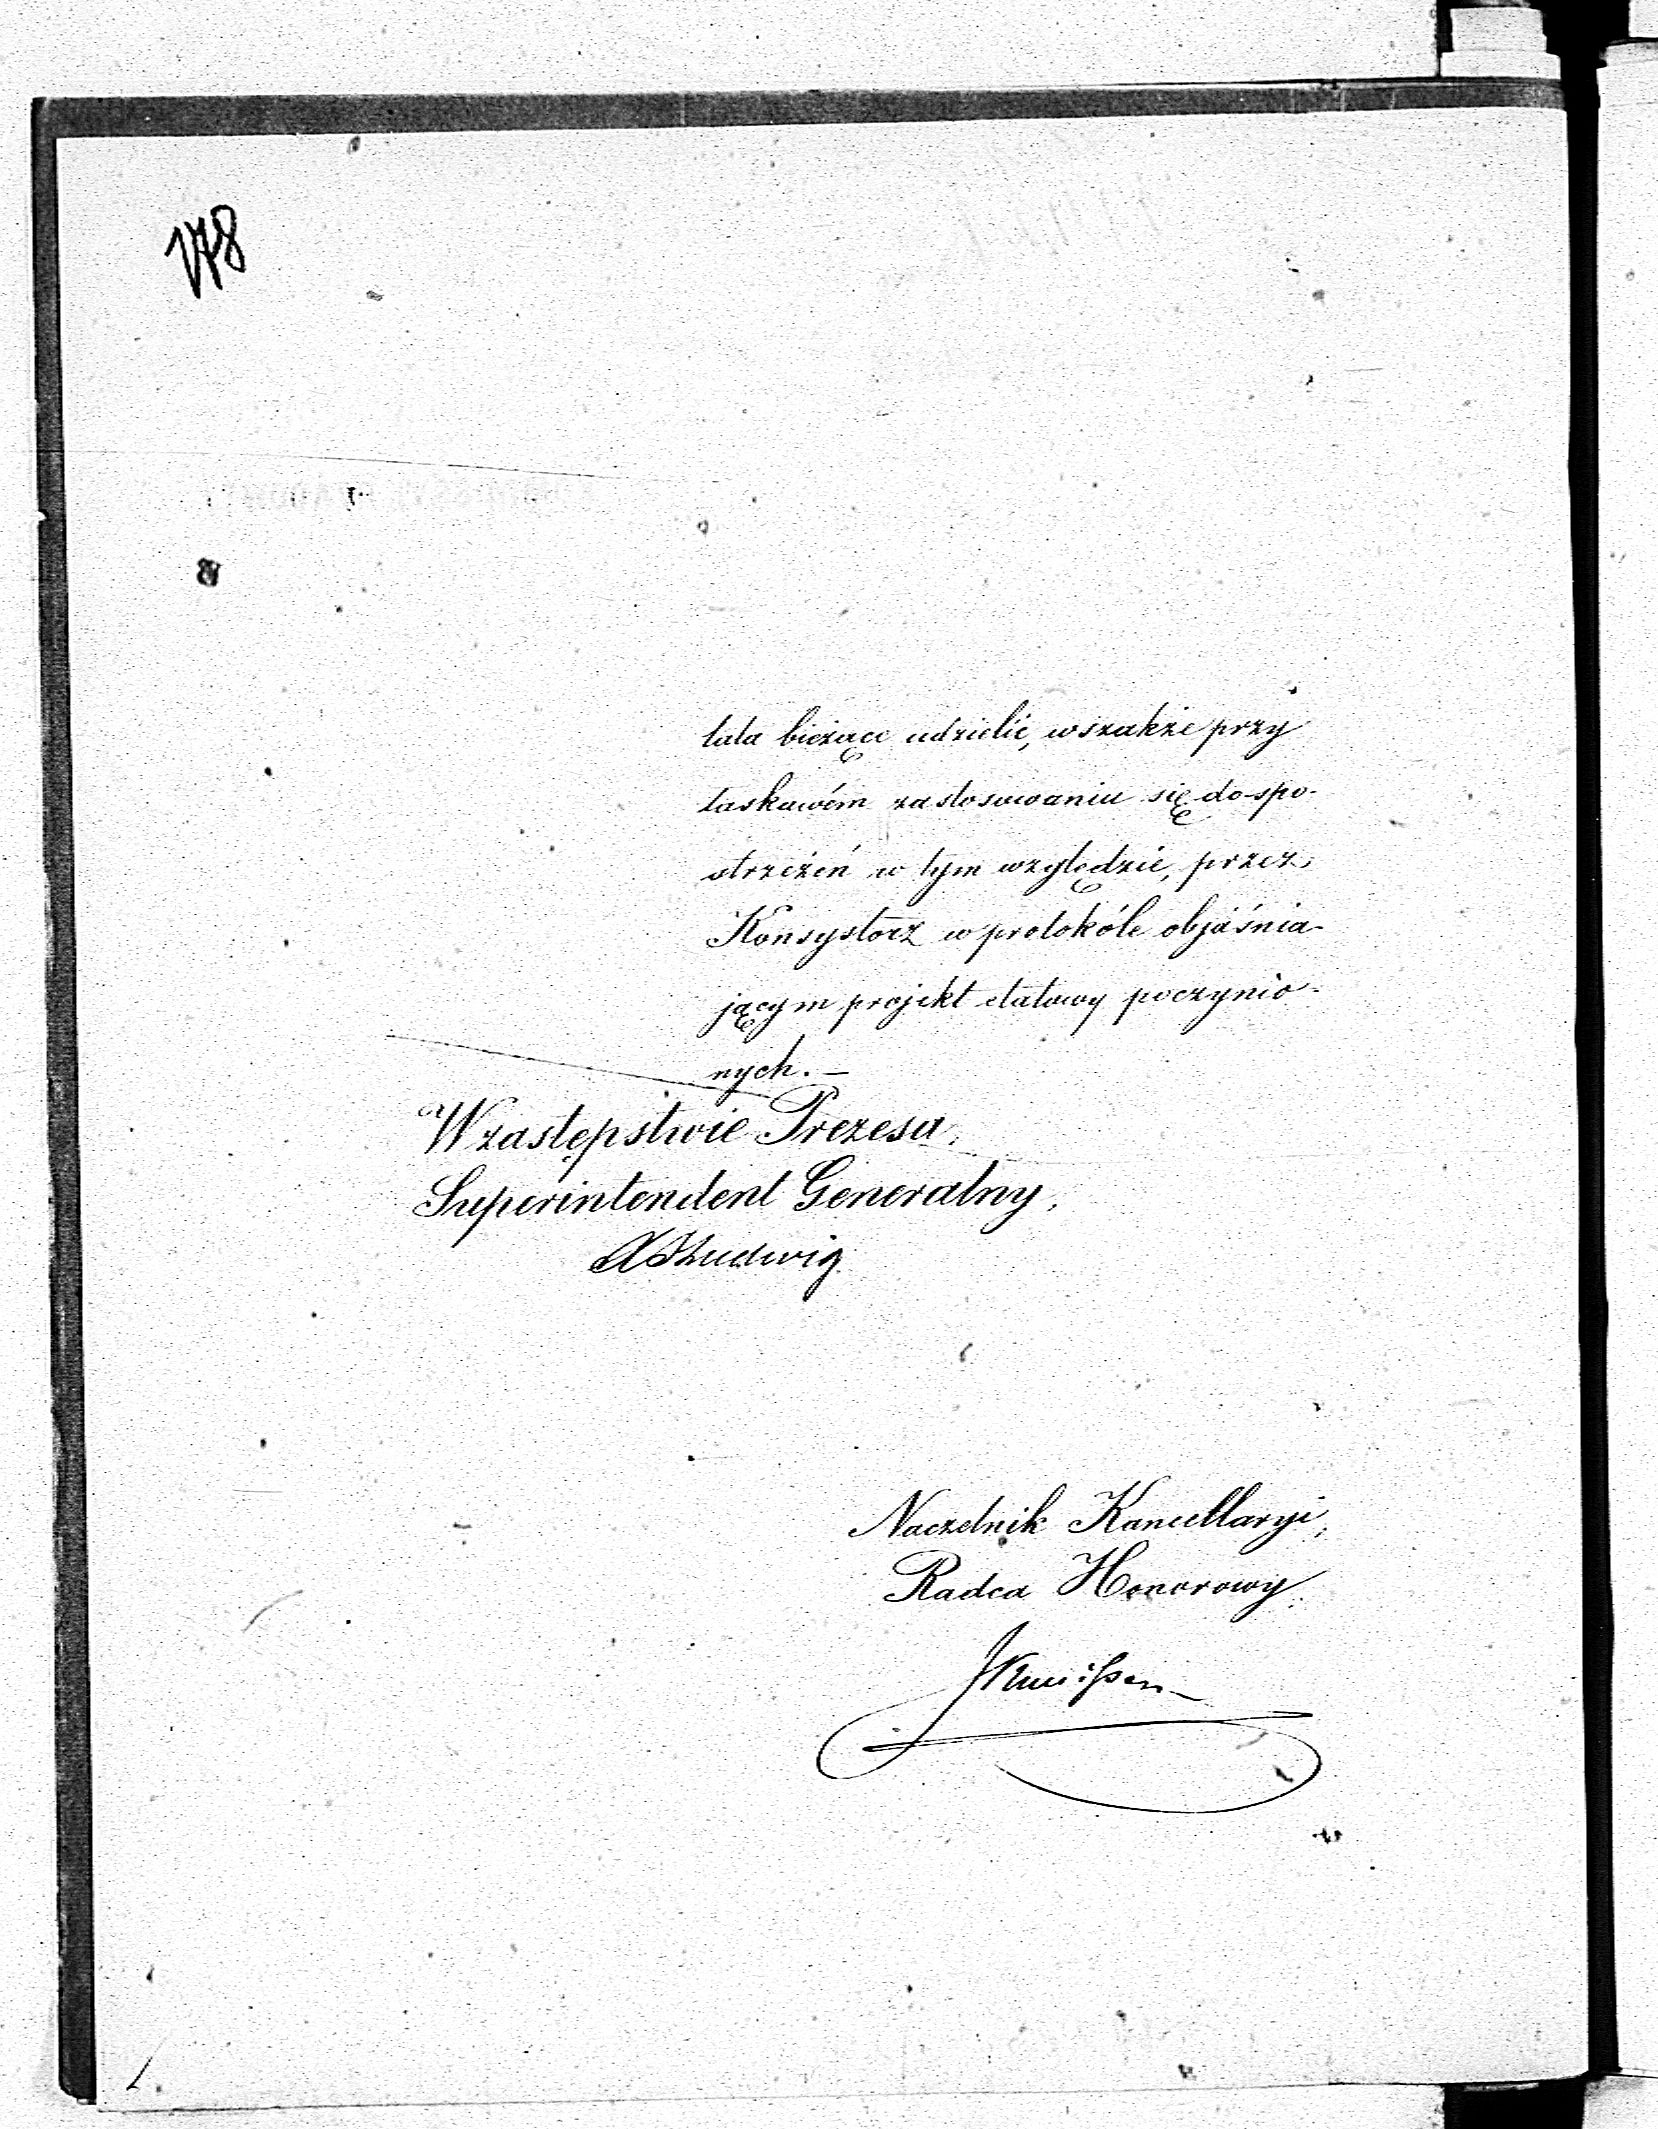 178
lata bieżące udzielić, wszakże przy
łaskawém zastosowaniu się do spo-
strzeżeń w tym względzie, przez
Konsystorz w protokóle objaśnia-
jącym projekt etatowy poczynio-
nych. —
W zastępstwie Prezesa,
Superintendent Generalny,
Ludwig
Naczelnik Kancellaryi,
Radca Honorowy